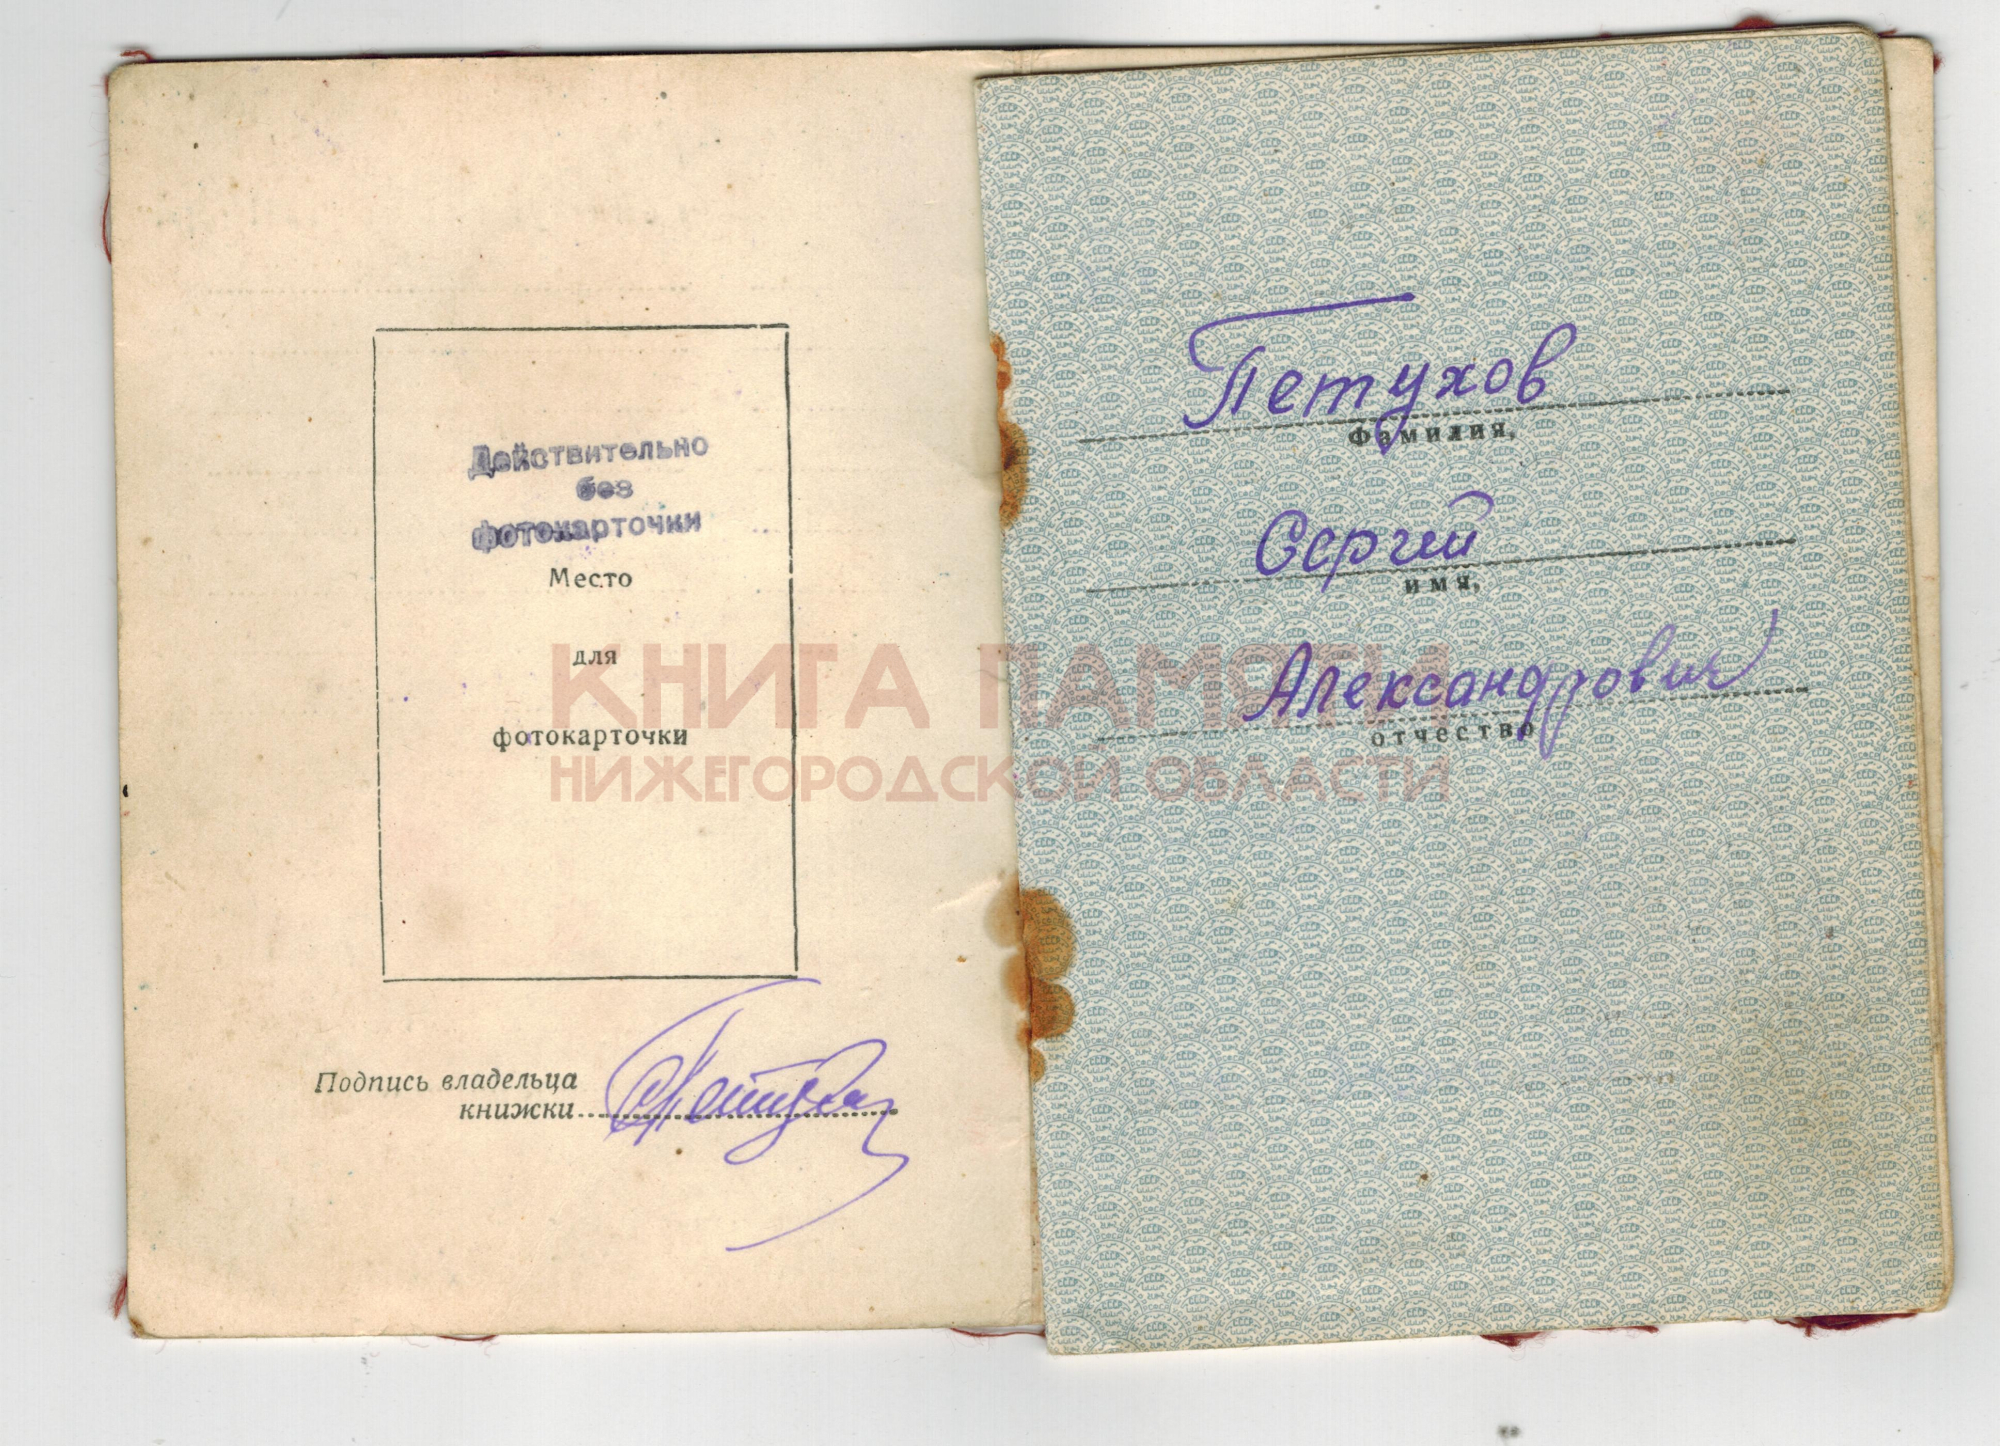 Действительно
без
фотокарточки
Место
для
фотокарточки
Подпись владельца
книжки
Петухов
Фамилия,
Сергей
имя,
Александрович
отчество
КНИГА ПАМЯТИ
НИЖЕГОРОДСКОЙ ОБЛАСТИ